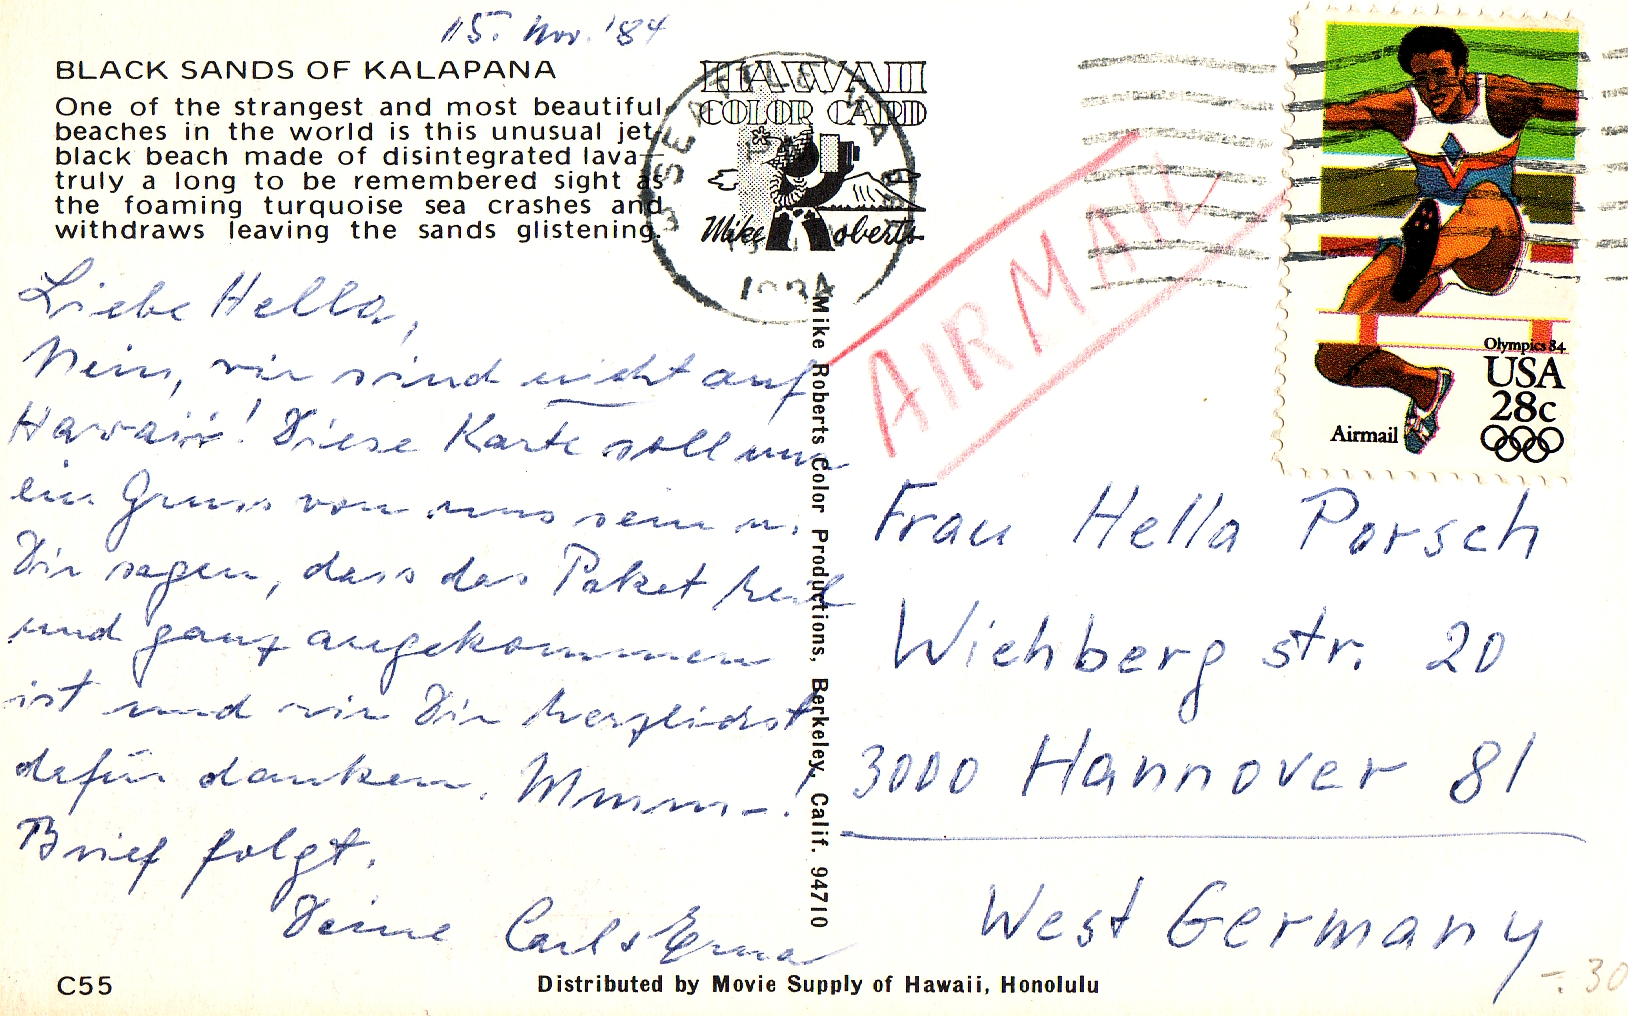 15. Nov. '84
BLACK SANDS OF KALAPANA
One of the strangest and most beautiful
beaches in the world is this unusual jet
black beach made of disintegrated lava—
truly a long to be remembered sight as
the foaming turquoise sea crashes and
withdraws leaving the sands glistening.
HAWAII
COLOR CARD
Mike Roberts
SEATTLE WA
1984
AIRMAIL
Olympics 84
USA
28c
Airmail
Liebe Hella,
Nein, wir sind nicht auf
Hawaii! Diese Karte soll nur
ein Gruss von uns sein u.
Dir sagen, dass das Paket heil
und ganz angekommen
ist und wir Dir herzlichst
dafür danken. Mmmm-!
Brief folgt.
Deine Carl & Erna
Mike Roberts Color Productions, Berkeley, Calif. 94710
Frau Hella Porsch
Wiehbergstr. 20
3000 Hannover 81
West Germany
-.30
C55
Distributed by Movie Supply of Hawaii, Honolulu